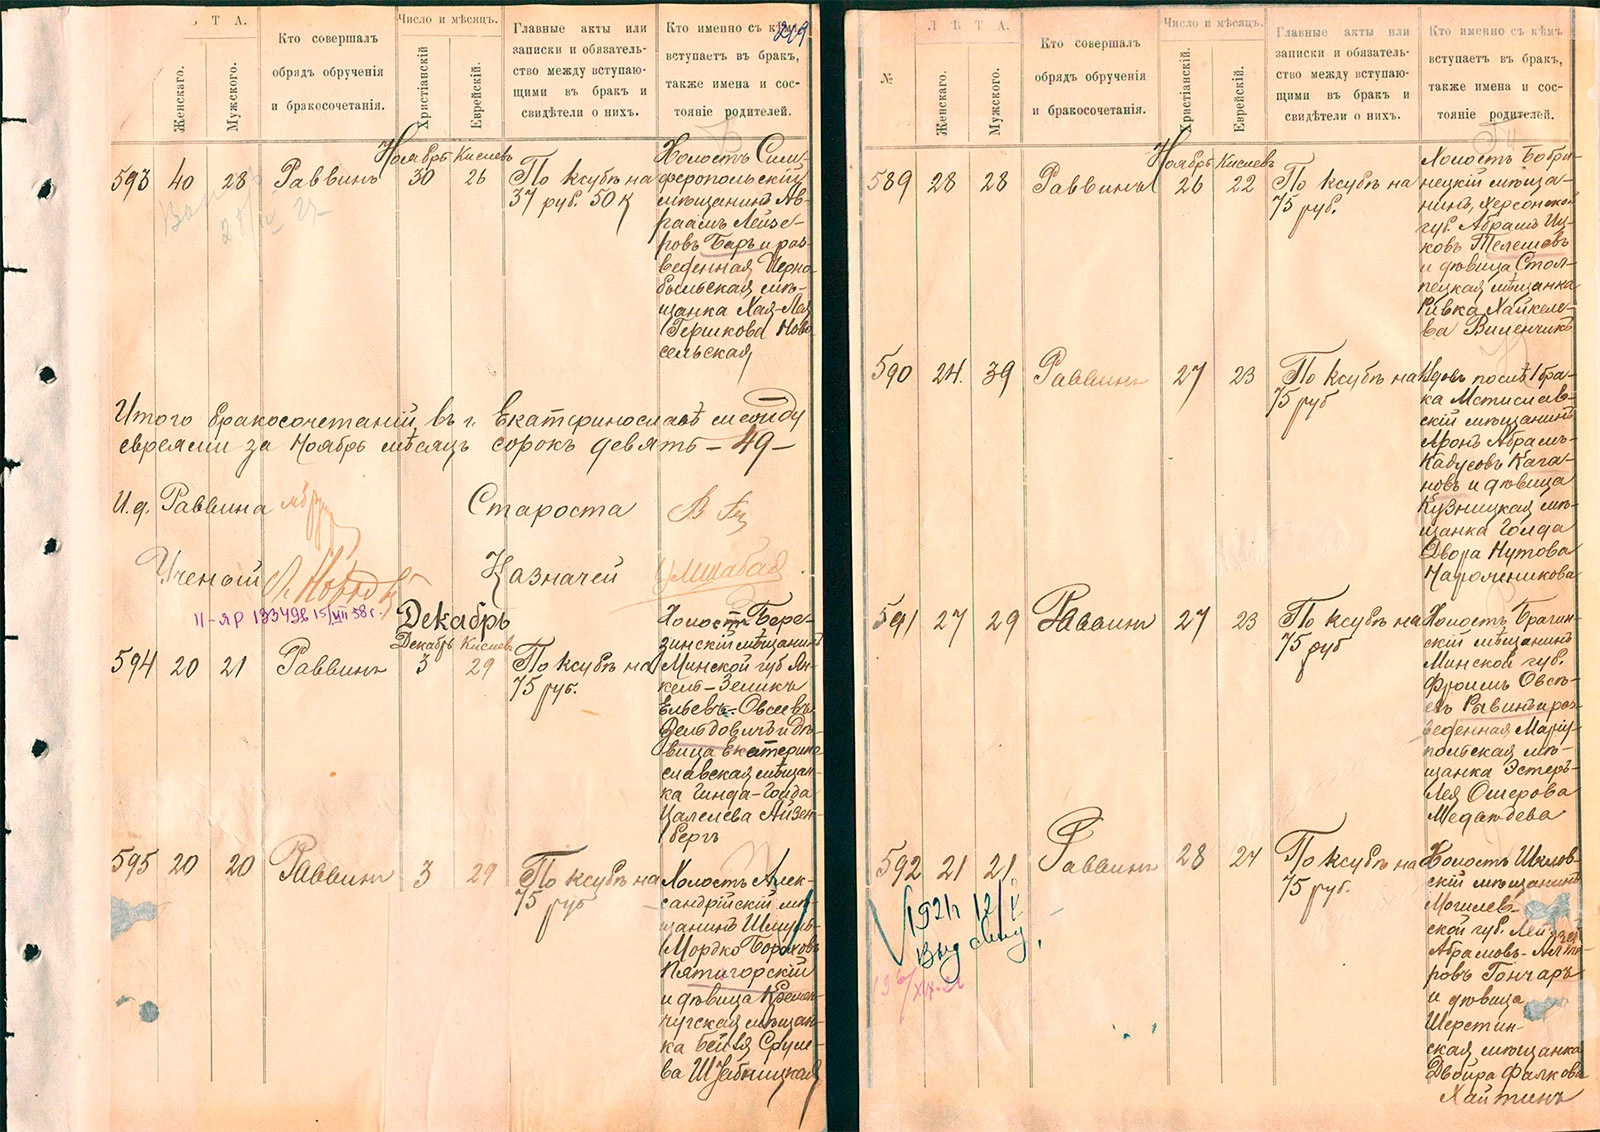 Л Ѣ Т А.
Женскаго.
Мужского.
Кто совершалъ
обрядъ обрученія
и бракосочетанія.
Число и мѣсяцъ.
Христіанскій
Еврейскій.
Главные акты или
записки и обязатель-
ство между вступаю-
щими въ бракъ и
свидѣтели о нихъ.
Кто именно съ кѣмъ
вступаетъ въ бракъ,
также имена и сос-
тояніе родителей.
229
Ноябрь Кислев
593 40 28 Раввинъ 30 26
По ксубѣ на
37 руб. 50 к
Холостъ Сим-
феропольскій
мѣщанинъ Ав-
раамъ Лейзе-
ровъ Баръ и раз-
веденная Черно-
быльская мѣ-
щанка Хая-Лея
Гершкова Ново
сельская
Итого бракосочетаній въ г. Екатеринославѣ между
евреями за Ноябрь мѣсяцъ сорокъ девять - 49 -
И.д. Раввина
Староста
Ученый
Казначей
11-ЯР 133492 15/VII 58 г.
Декабрь
Декабрь Кислев
594 20 21 Раввинъ 3 29
По ксубѣ на
75 руб.
Холостъ Бере-
зинскій мѣщанинъ
Минской губ Ян-
кель-Зеликъ
Ельевъ-Овсеевъ
Зельдовичъ и дѣ-
вица Екатерино
славская мѣщан-
ка Гинда-Голда
Цалелева Айзен-
бергъ
595 20 20 Раввинъ 3 29
По ксубѣ на
75 руб
Холостъ Алек-
сандрійскій мѣ-
щанинъ Шмуль-
Мордко Боруховъ
Пятигорскій
и дѣвица Кремен-
чугская мѣщан-
ка Бейля Сруле-
ва Шабницкая
№
Л Ѣ Т А.
Женскаго.
Мужского.
Кто совершалъ
обрядъ обрученія
и бракосочетанія.
Число и мѣсяцъ.
Христіанскій
Еврейскій.
Главные акты или
записки и обязатель-
ство между вступаю-
щими въ бракъ и
свидѣтели о нихъ.
Кто именно съ кѣмъ
вступаетъ въ бракъ,
также имена и сос-
тояніе родителей.
Ноябрь Кислевъ
589 28 28 Раввинъ 26 22
По ксубѣ на
75 руб.
Холостъ Бобри-
нецкій мѣща-
нинъ, Херсонской
губ. Абрамъ Иц-
ковъ Телешевъ
и дѣвица Стол-
пецкая мѣщанка
Ривка Хайкеле-
ва Виленчикъ
590 24. 39 Раввинъ 27 23
По ксубѣ на
75 руб
Вдовъ послѣ 1 бра-
ка Мстислав-
скій мѣщанинъ
Аронъ Абрамъ-
Кадусовъ Кага-
новъ и дѣвица
Кузницкая мѣ-
щанка Голда
Двора Нутова
591 27 29 Раввинъ 27 23
По ксубѣ на
75 руб
Холостъ Брагин-
скій мѣщанинъ
Минской губ.
Фроимъ Овсѣ-
евъ Рывинъ и раз-
веденная Маріу-
польская мѣ-
щанка Эстеръ-
Лея Ошерова
Медалдева
592 21 21 Раввинъ 28 24
По ксубѣ на
75 руб.
Холостъ Шклов-
скій мѣщанинъ
Могилев-
ской губ. Лейзеръ
Абрамовъ-
ровъ Гончаръ
и дѣвица
Шерстин-
ская мѣщанка
Двойра Фалкова
Хайтинъ
1924 12/V